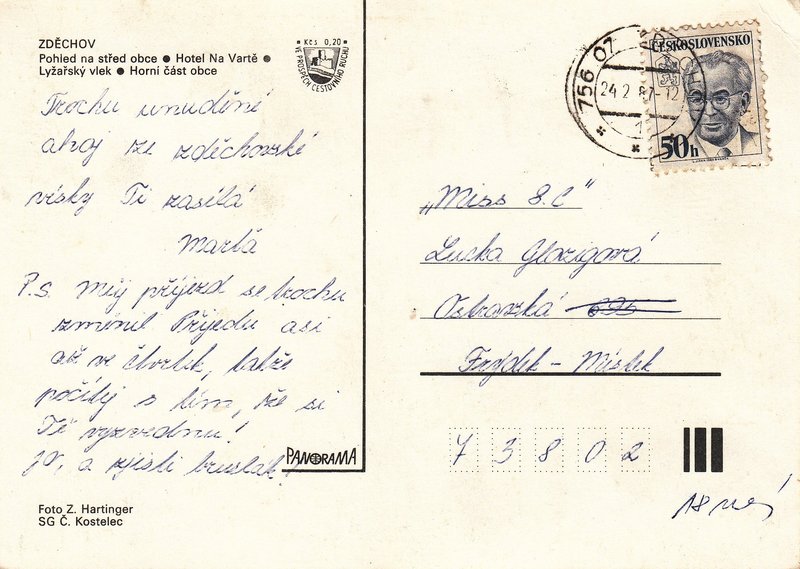 ZDĚCHOV
Pohled na střed obce ● Hotel Na Vartě ●
Lyžařský vlek ● Horní část obce
Kčs 0,20
VE PROSPĚCH CESTOVNÍHO RUCHU
Trochu unuděné
ahoj ze zděchovské
vísky Ti zasílá
Marta
P.S. Můj příjezd se trochu
změnil Přijedu asi
až ve čtvrtek, takže
počítej s tím, že si
Tě vyzvednu!
Jo, a zjisti bruslák!
PANORAMA
Foto Z. Hartinger
SG Č. Kostelec
756 07
24.2.87-12
ČESKOSLOVENSKO
50h
„Miss 8.C"
Lucka Glozigová
Ostravská 696
Frýdek - Místek
73802